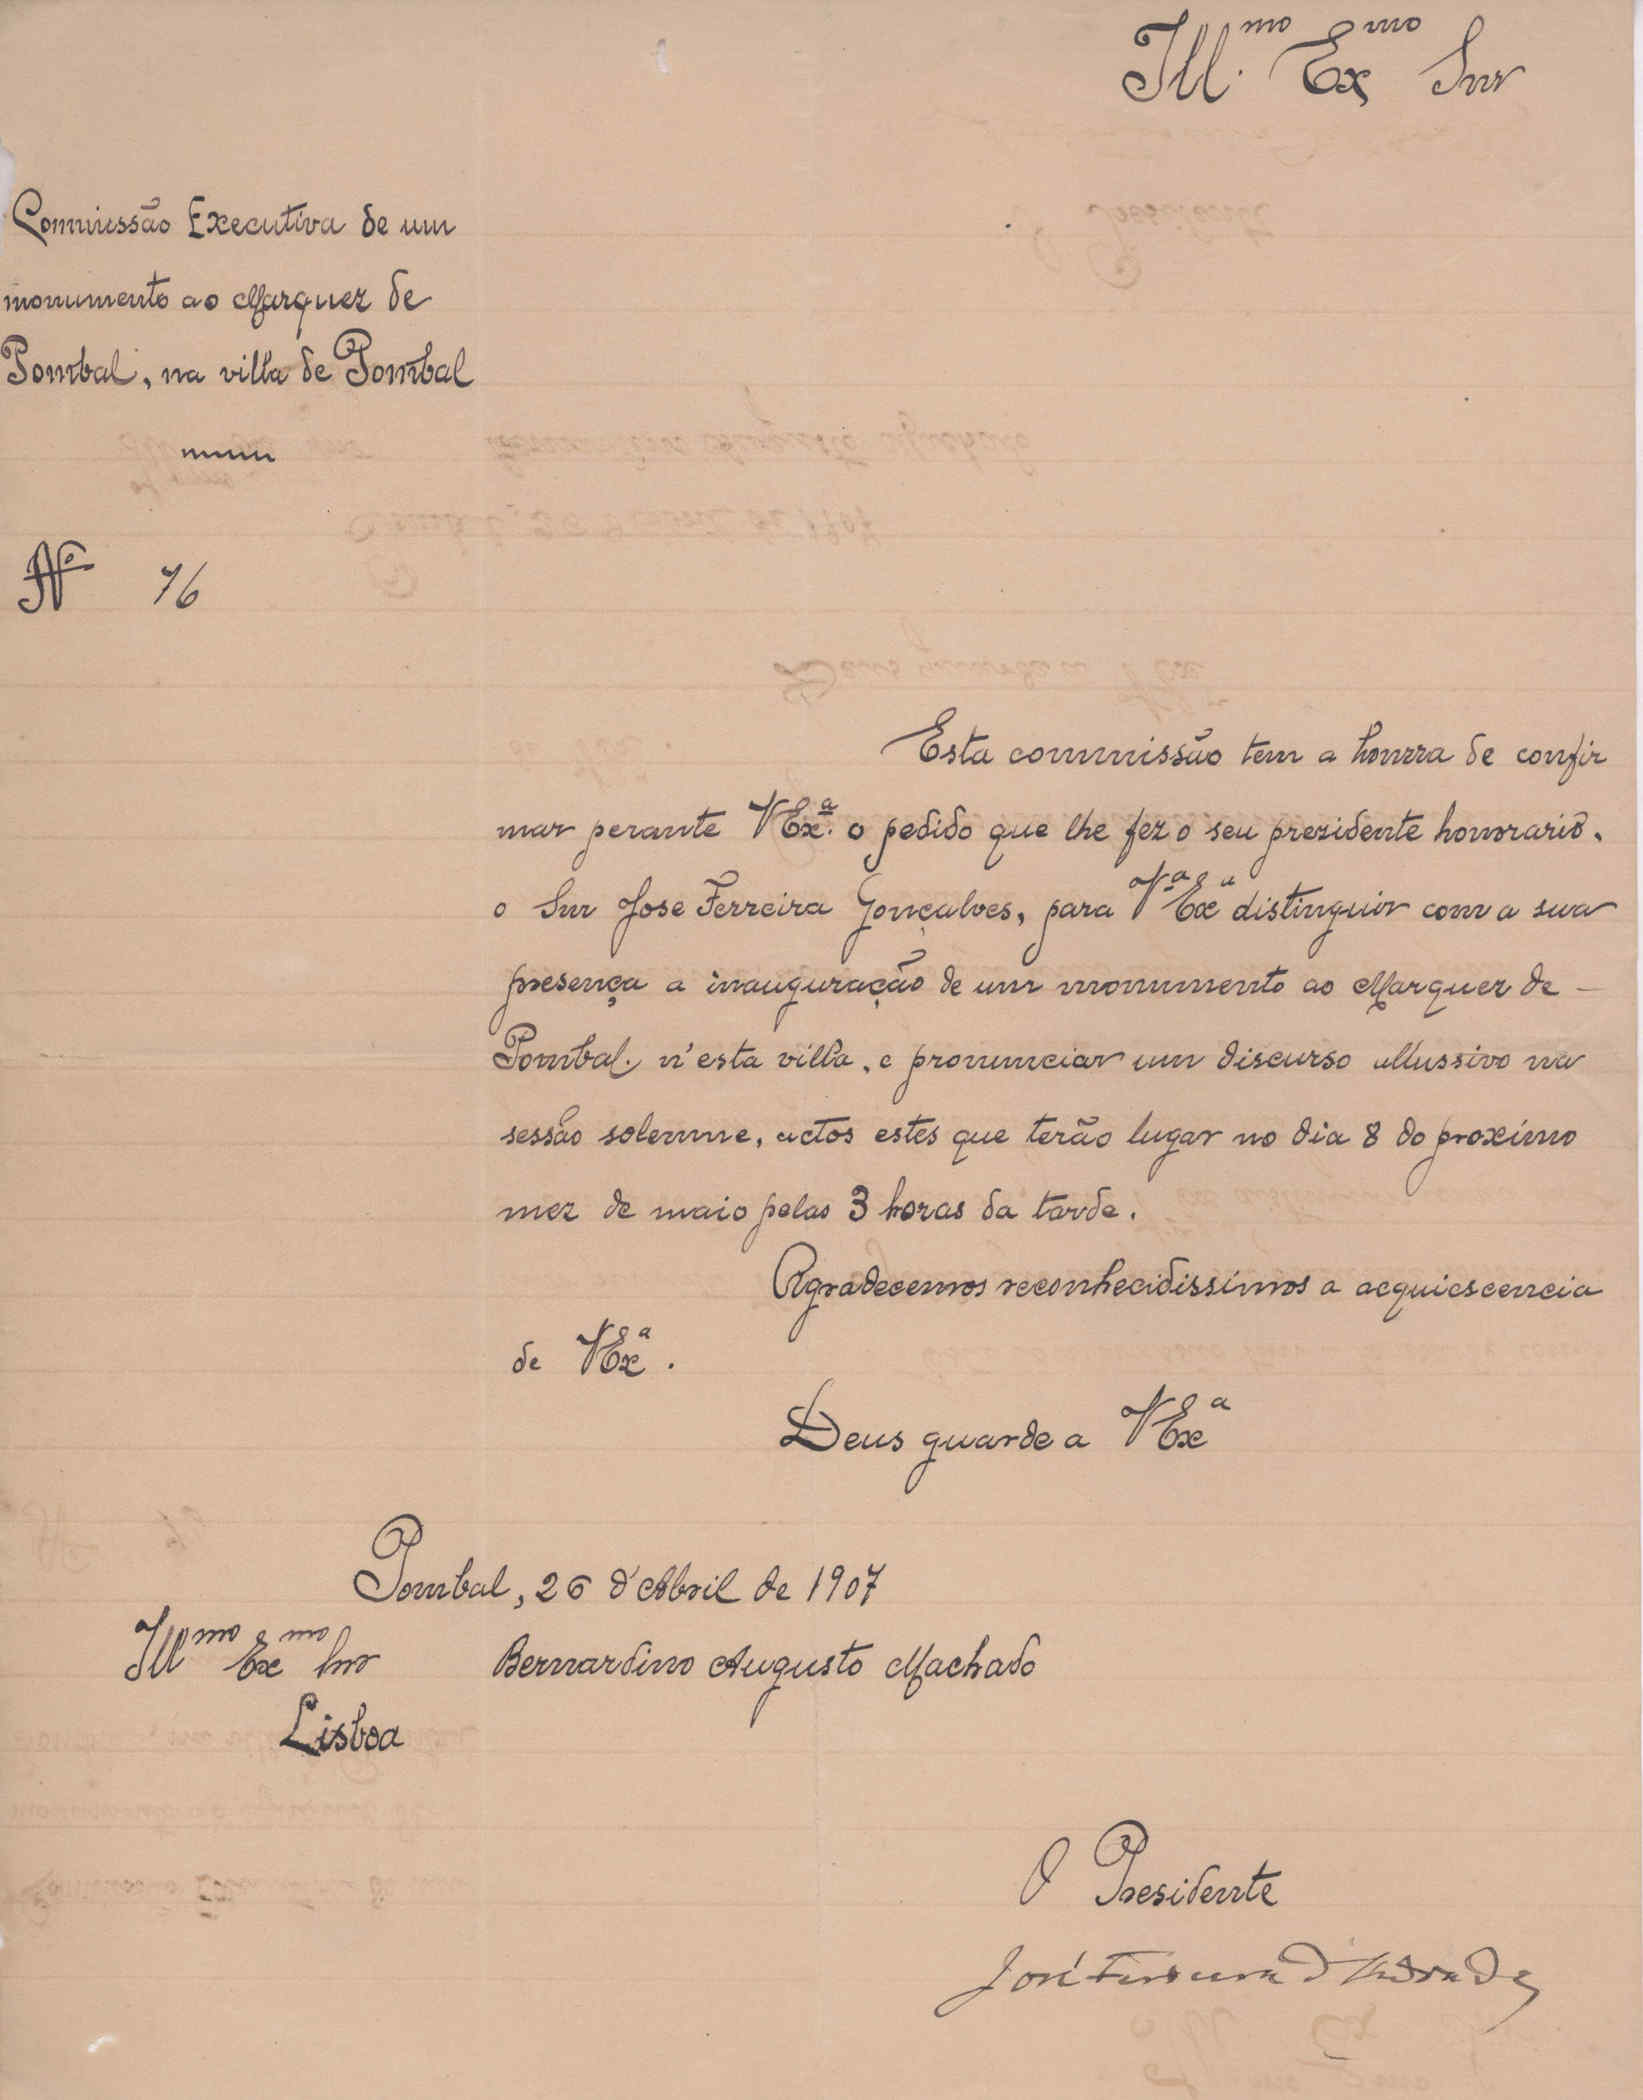 Ill.mo Exmo Snr
Commissão Executiva de um
monumento ao Marquez de
Pombal, na villa de Pombal
No 76
Esta commissão tem a honrra de confir
mar perante VExa. o pedido que lhe fez o seu prezidente honorario,
o Snr Jose Ferreira Gonçalves, para Va Exa distinguir com a sua
presença a inauguração de um monumento ao Marquez de –
Pombal. n'esta villa, e pronunciar um discurso allussivo na
sessão solemne, actos estes que terão lugar no dia 8 do proximo
mez de maio pelas 3 horas da tarde.
Agradecemos reconhecidissimos a acquiescencia
de VExa.
Deus guarde a VExa
Pombal, 26 d'Abril de 1907
Illmo Exmo Snr Bernardino Augusto Machado
Lisboa
O Presidente
José Ferreira d'Andrade